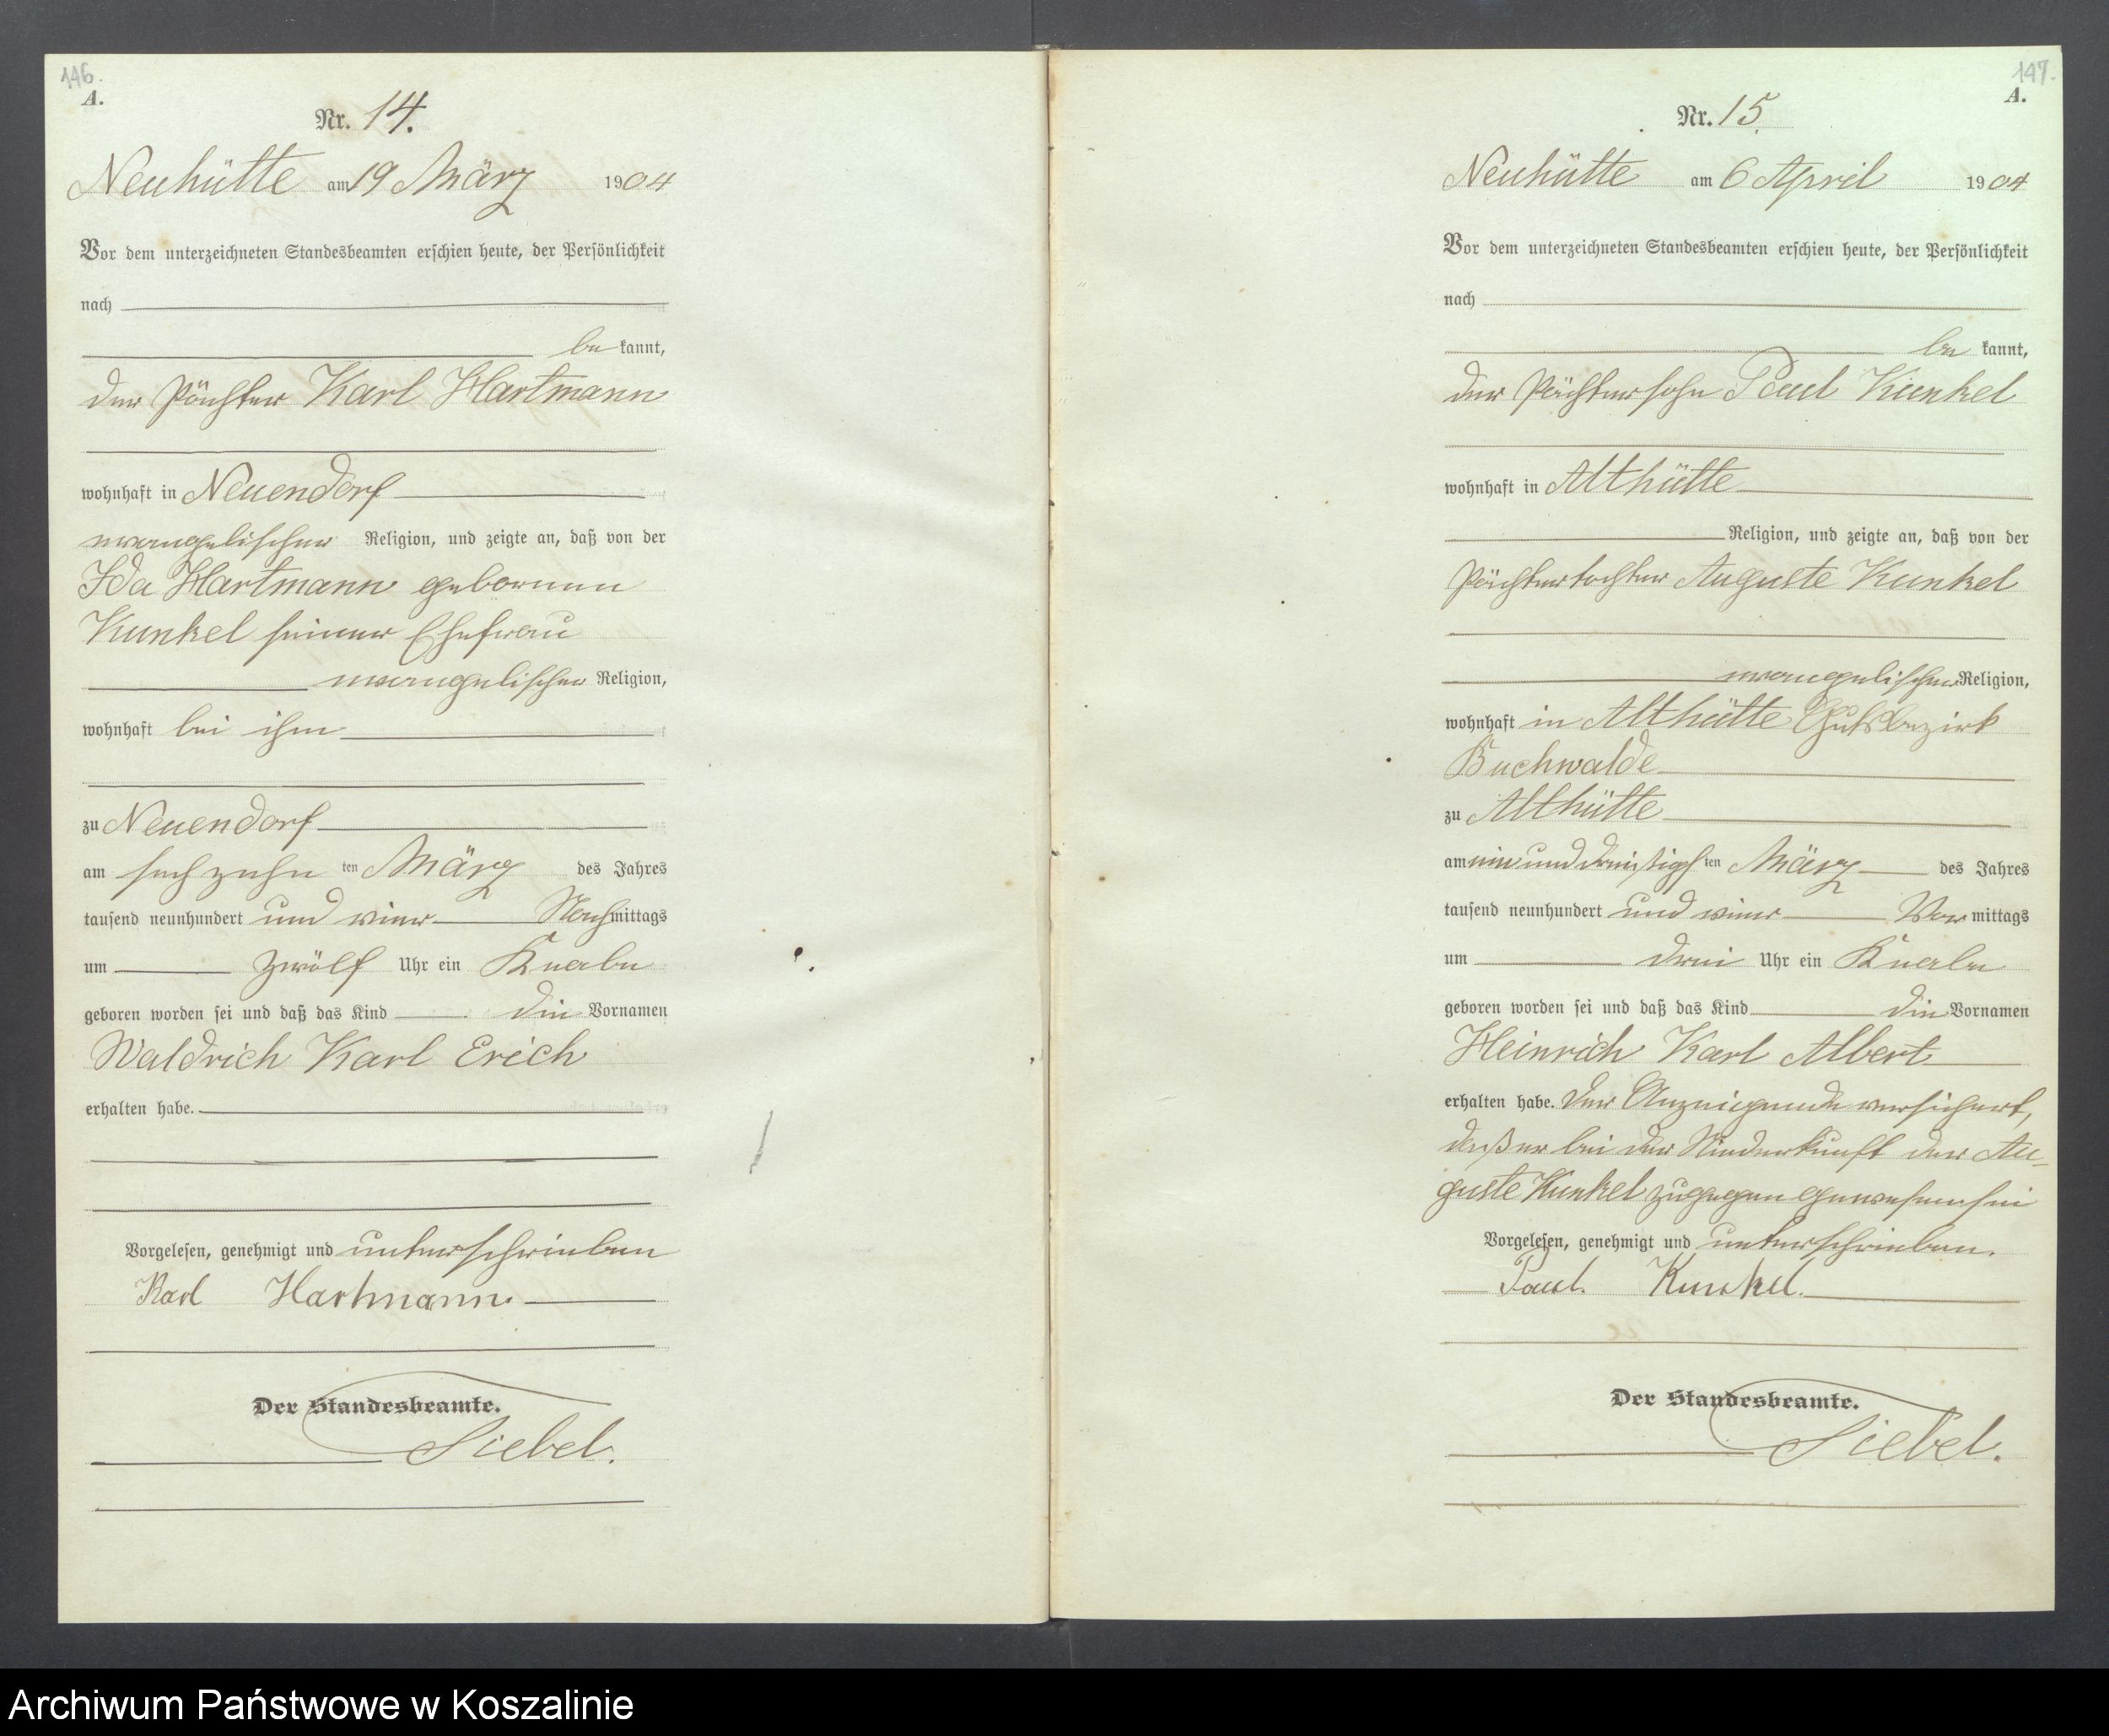 146.
A.
Nr. 14.
Neuhütte am 19 März 1904
Vor dem unterzeichneten Standesbeamten erschien heute, der Persönlichkeit
nach
be kannt,
der Pächter Karl Hartmann
wohnhaft in Neuendorf
evangelischer Religion, und zeigte an, daß von der
Ida Hartmann geborenen
Kunkel seiner Ehefrau
evangelischer Religion,
wohnhaft bei ihm
zu Neuendorf
am sechzehn ten März des Jahres
tausend neunhundert und vier Nachmittags
um zwölf Uhr ein Knabe
geboren worden sei und daß das Kind die Vornamen
Waldrich Karl Erich
erhalten habe.
Vorgelesen, genehmigt und unterschrieben
Karl Hartmann
Der Standesbeamte.
Siebel.
147.
A.
Nr. 15.
Neuhütte am 6 April 1904
Vor dem unterzeichneten Standesbeamten erschien heute, der Persönlichkeit
nach
be kannt,
der Pächtersohn Paul Kunkel
wohnhaft in Althütte
Religion, und zeigte an, daß von der
Pächtertochter Auguste Kunkel
evangelischer Religion,
wohnhaft in Althütte Gutsbezirk
Buchwalde
zu Althütte
am einunddreißigsten März des Jahres
tausend neunhundert und vier Vormittags
um drei Uhr ein Knabe
geboren worden sei und daß das Kind die Vornamen
Heinrich Karl Albert
erhalten habe. Der Anzeigende versichert,
daß er bei der Niederkunft der Au-
guste Kunkel zugegen gewesen sei
Vorgelesen, genehmigt und unterschrieben.
Paul Kunkel.
Der Standesbeamte.
Siebel.
Archiwum Państwowe w Koszalinie